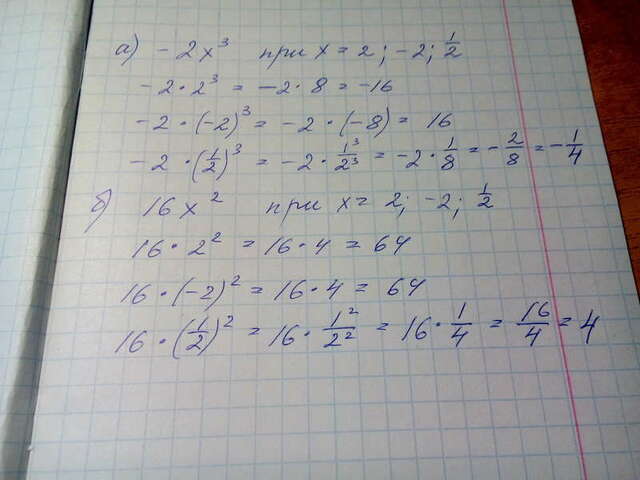 а) - 2x³ при x = 2; -2; 1/2
-2 · 2³ = -2 · 8 = -16
-2 · (-2)³ = -2 · (-8) = 16
-2 · (1/2)³ = -2 · 1³/2³ = -2 · 1/8 = -2/8 = -1/4
б) 16x² при x = 2; -2; 1/2
16 · 2² = 16 · 4 = 64
16 · (-2)² = 16 · 4 = 64
16 · (1/2)² = 16 · 1²/2² = 16 · 1/4 = 16/4 = 4